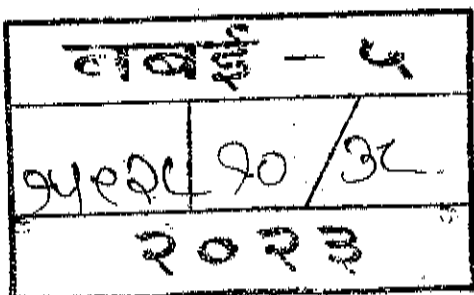 बबई - ५
१५१२८ १० / ३८
२०२३